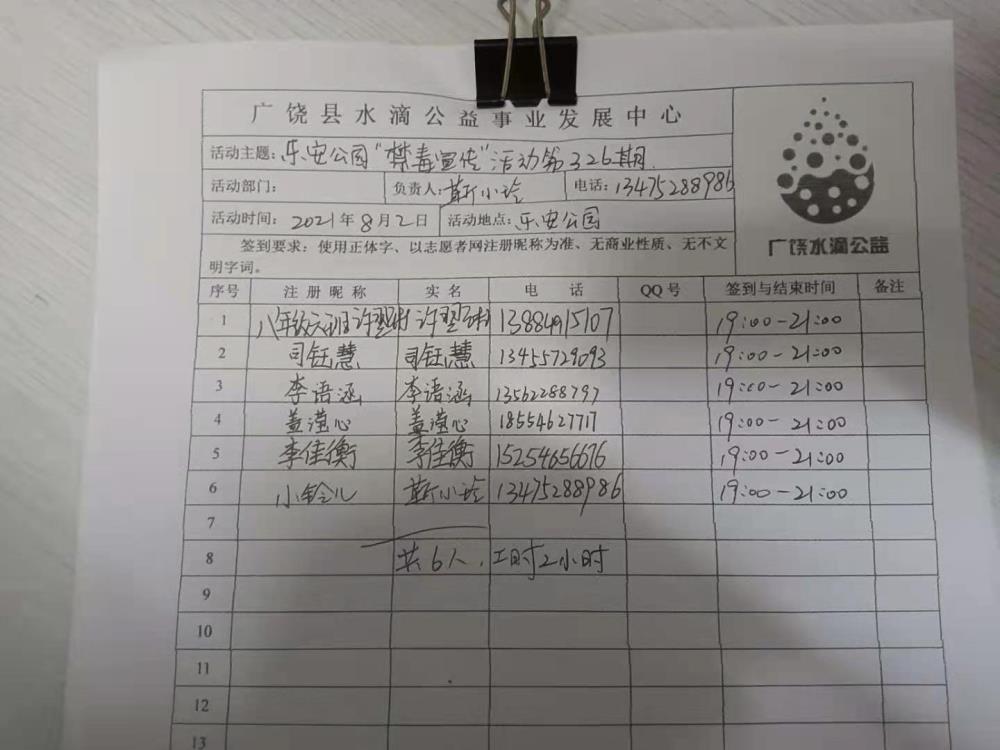 广饶县水滴公益事业发展中心
活动主题：乐安公园“禁毒宣传”活动第326期
活动部门： 负责人：靳小玲 电话：13475288986
活动时间：2021年8月2日 活动地点：乐安公园
签到要求：使用正体字、以志愿者网注册昵称为准、无商业性质、无不文
明字词。
广饶水滴公益
序号 注册昵称 实名 电话 QQ号 签到与结束时间 备注
1 八年级六班许翌彬 许翌彬 19:00-21:00
2 司钰慧 司钰慧 13455729093 19:00-21:00
3 李语涵 李语涵 13562288797 19:00-21:00
4 盖滢心 盖滢心 18554627717 19:00-21:00
5 李佳衡 李佳衡 15254656676 19:00-21:00
6 小铃儿 靳小玲 13475288986 19:00-21:00
7
8 共6人，工时2小时
9
10
11
12
13